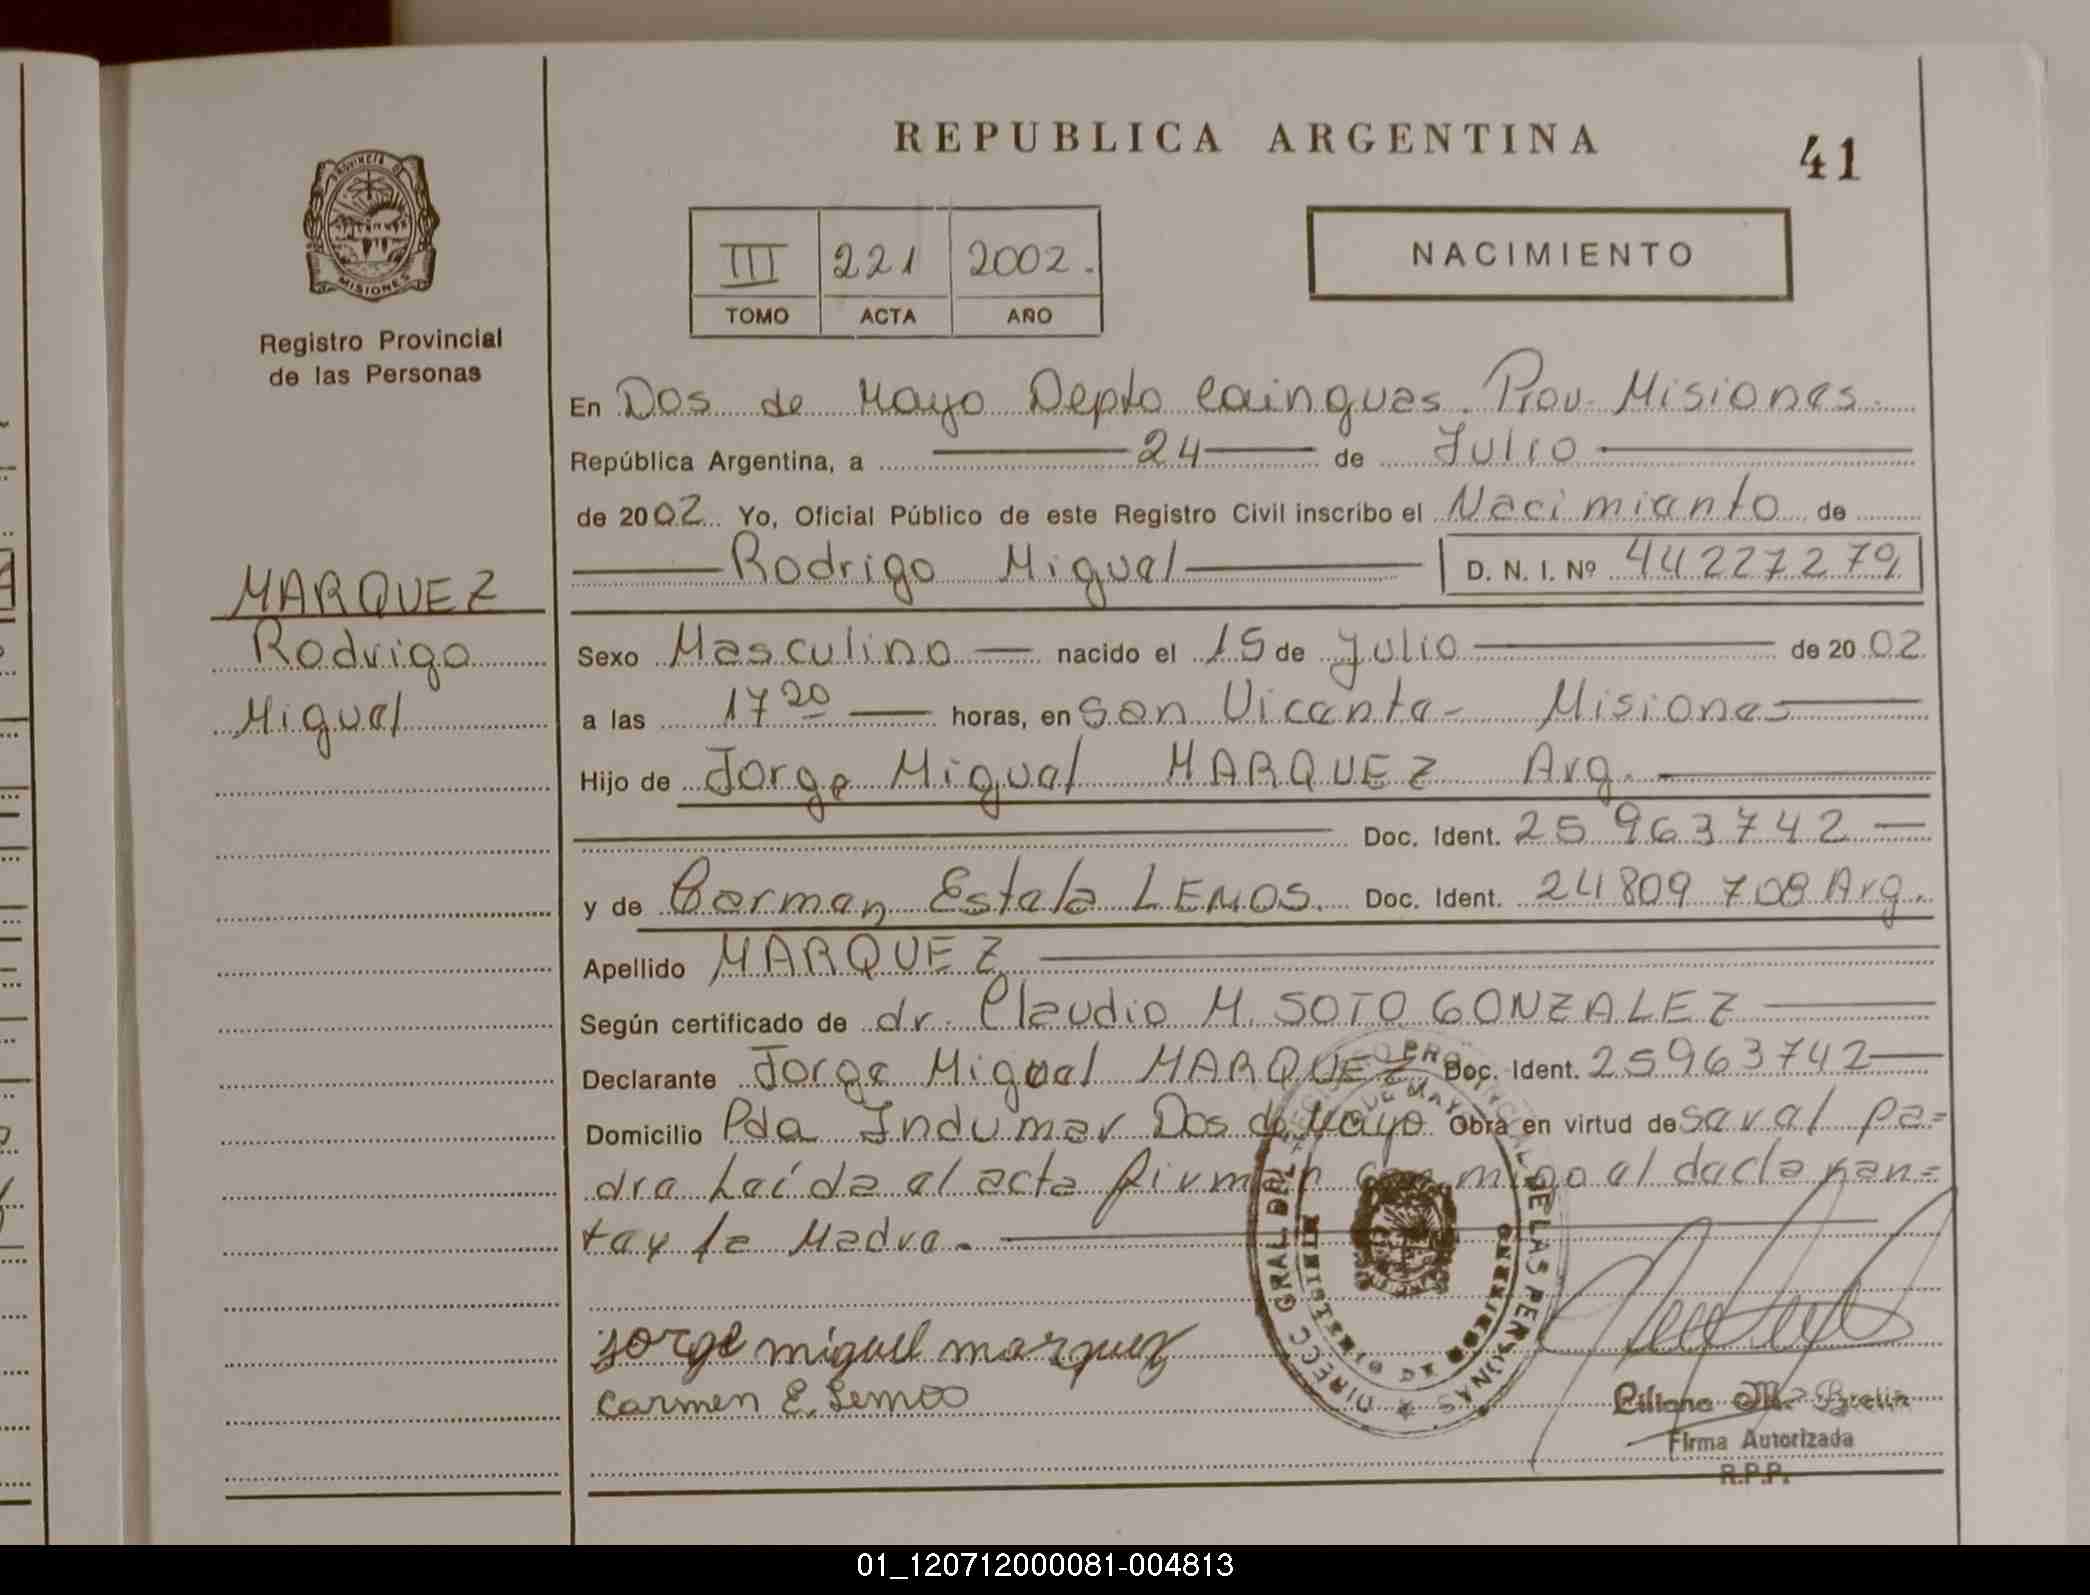 REPUBLICA ARGENTINA
41
PROVINCIA DE
MISIONES
Registro Provincial
de las Personas
III 221 2002.
TOMO ACTA AÑO
NACIMIENTO
En Dos de Mayo Depto Cainguas. Prov. Misiones.
República Argentina, a 24 de Julio
de 2002 Yo, Oficial Público de este Registro Civil inscribo el Nacimiento de
Rodrigo Miguel D. N. I. Nº 44227279
MARQUEZ
Rodrigo
Miguel
Sexo Masculino nacido el 15 de Julio de 2002
a las 17 20 horas, en San Vicente - Misiones
Hijo de Jorge Miguel MARQUEZ Arg.
Doc. Ident. 25963742
y de Carmen Estela LEMOS. Doc. Ident. 24809708 Arg.
Apellido MARQUEZ
Según certificado de dr. Claudio M. SOTO GONZALEZ
Declarante Jorge Miguel MARQUEZ Doc. Ident. 25963742
Domicilio Pda Indumar Dos de Mayo Obra en virtud de ser el pa=
dre Leída el acta firman conmigo el declaran=
te y la Madre.
DIRECC GRAL DEL REGISTRO PROVINCIAL DE LAS PERSONAS
MINISTERIO DE GOBIERNO
jorge miguel marquez
Carmen E. Lemos
Liliana
Firma Autorizada
R.P.P.
01_120712000081-004813